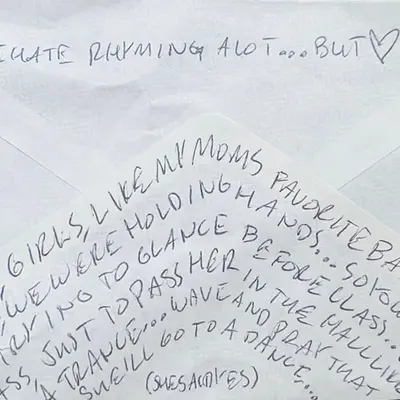 HATE RHYMING ALOT... BUT ♡
GIRLS, LIKE MY MOMS FAVORITE BA
WE WERE HOLDING HANDS... SO YOU
TRYING TO GLANCE BEFORE CLASS...
ASS JUST TO PASS HER IN THE HALL LIKE
A TRANCE... WAVE AND PRAY THAT
SHE'LL GO TO A DANCE...
(SHE SAID YES)